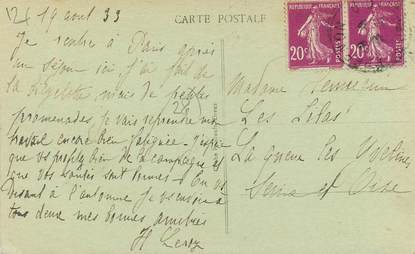 19 aout 33
CARTE POSTALE
Je rentre à Paris après
un séjour ici j'ai fait de
la bicyclette mais de petites
promenades, je vais reprendre mon
travail encore bien fatiguée. J'espère
que vs profitez bien de la campagne et
que vos santés sont bonnes. En vs
disant à l'automne je vs envoie à
tous deux mes bonnes amitiés
H Leroy
RÉPUBLIQUE FRANÇAISE
20c
POSTES
RÉPUBLIQUE FRANÇAISE
20c
POSTES
Madame
Les Lilas
La queue les Yvelines
Seine et Oise